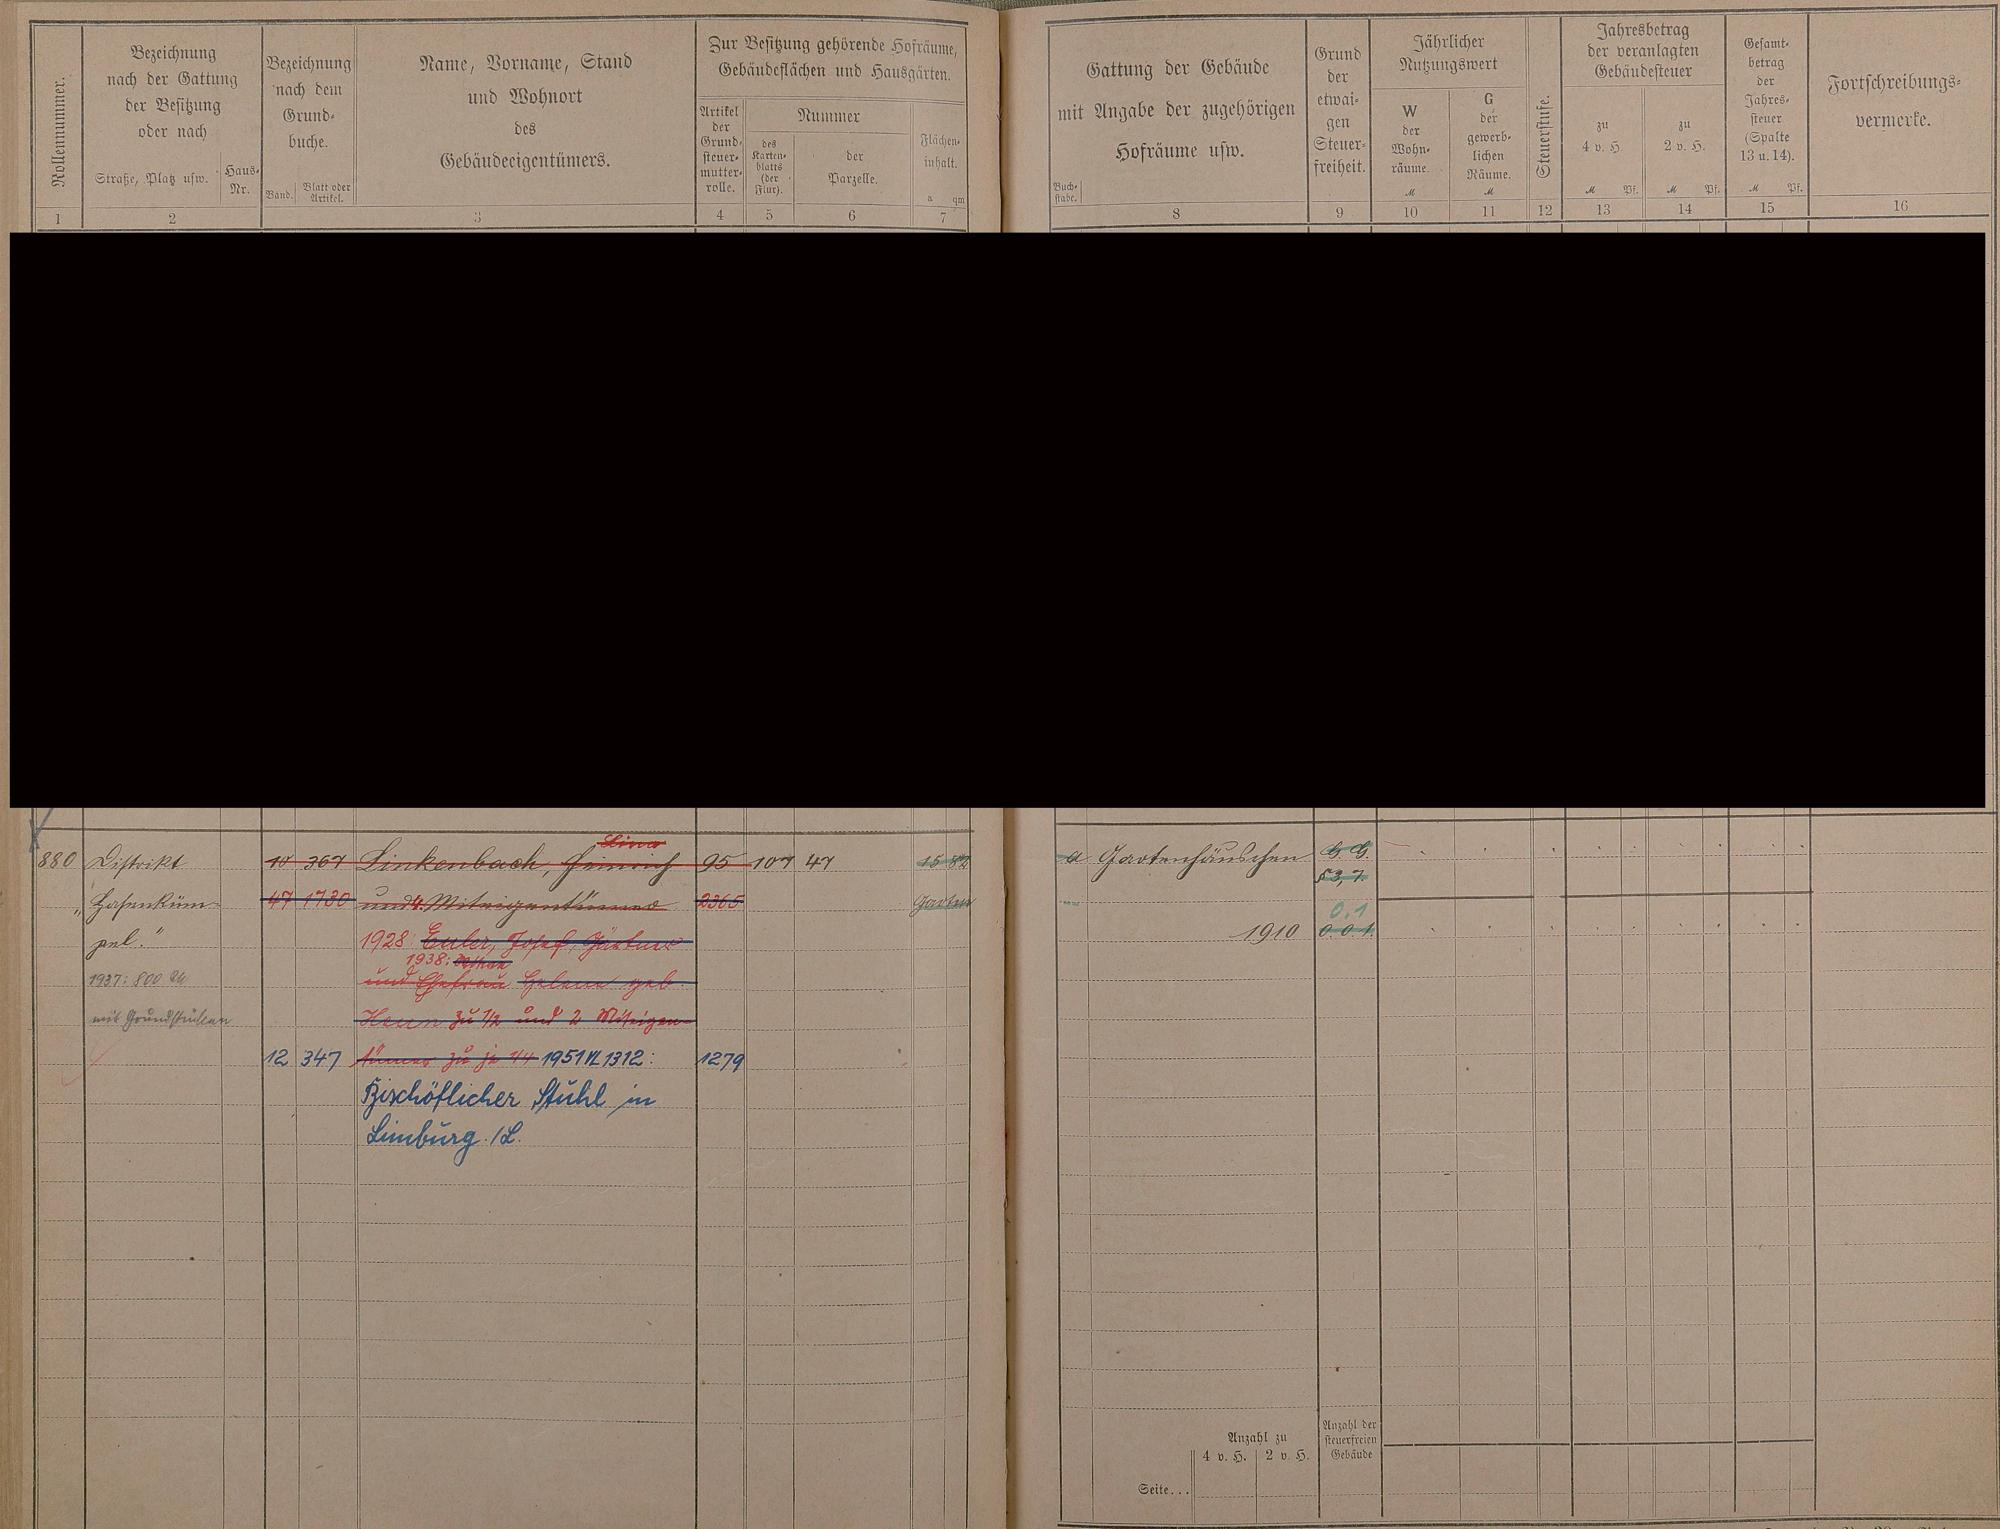 Rollennummer.
Bezeichnung
nach der Gattung
der Besitzung
oder nach
Straße, Platz usw.
Haus-
Nr.
Bezeichnung
nach dem
Grund-
buche.
Band.
Blatt oder
Artikel.
Name, Vorname, Stand
und Wohnort
des
Gebäudeeigentümers.
Zur Besitzung gehörende Hofräume,
Gebäudeflächen und Hausgärten.
Artikel
der
Grund-
steuer-
mutter-
rolle.
Nummer
des
Karten-
blatts
(der
Flur).
der
Parzelle.
Flächen-
inhalt.
a qm
1 2 3 4 5 6 7
Gattung der Gebäude
mit Angabe der zugehörigen
Hofräume usw.
Buch-
stabe.
Grund
der
etwai-
gen
Steuer-
freiheit.
Jährlicher
Nutzungswert
W
der
Wohn-
räume.
M
G
der
gewerb-
lichen
Räume.
M
Steuerstufe.
Jahresbetrag
der veranlagten
Gebäudesteuer
zu
4 v. H.
M Pf.
zu
2 v. H.
M Pf.
Gesamt-
betrag
der
Jahres-
steuer
(Spalte
13 u. 14).
M Pf.
Fortschreibungs-
vermerke.
8 9 10 11 12 13 14 15 16
Lina
880 Distrikt 10 367 Linkenbach, Heinrich 95 107 47 15 82
"Hasenküm- 47 1730 und 4 Miteigentümer 2365 Garten
pel." 1928: Euler, Josef, Gärtner
1938:
1937: 800 und Ehefrau Helene geb.
mit Grundstücken zu 1/2 und 2 Miteigen-
12 347 tümer zu je 1/4 1951 VL 1312: 1279
Bischöflicher Stuhl in
Limburg /L.
a Gartenhäuschen G. G.
§3,7.
0.1
1910 0.0.1.
Anzahl zu
4 v. H. 2 v. H.
Anzahl der
steuerfreien
Gebäude
Seite...